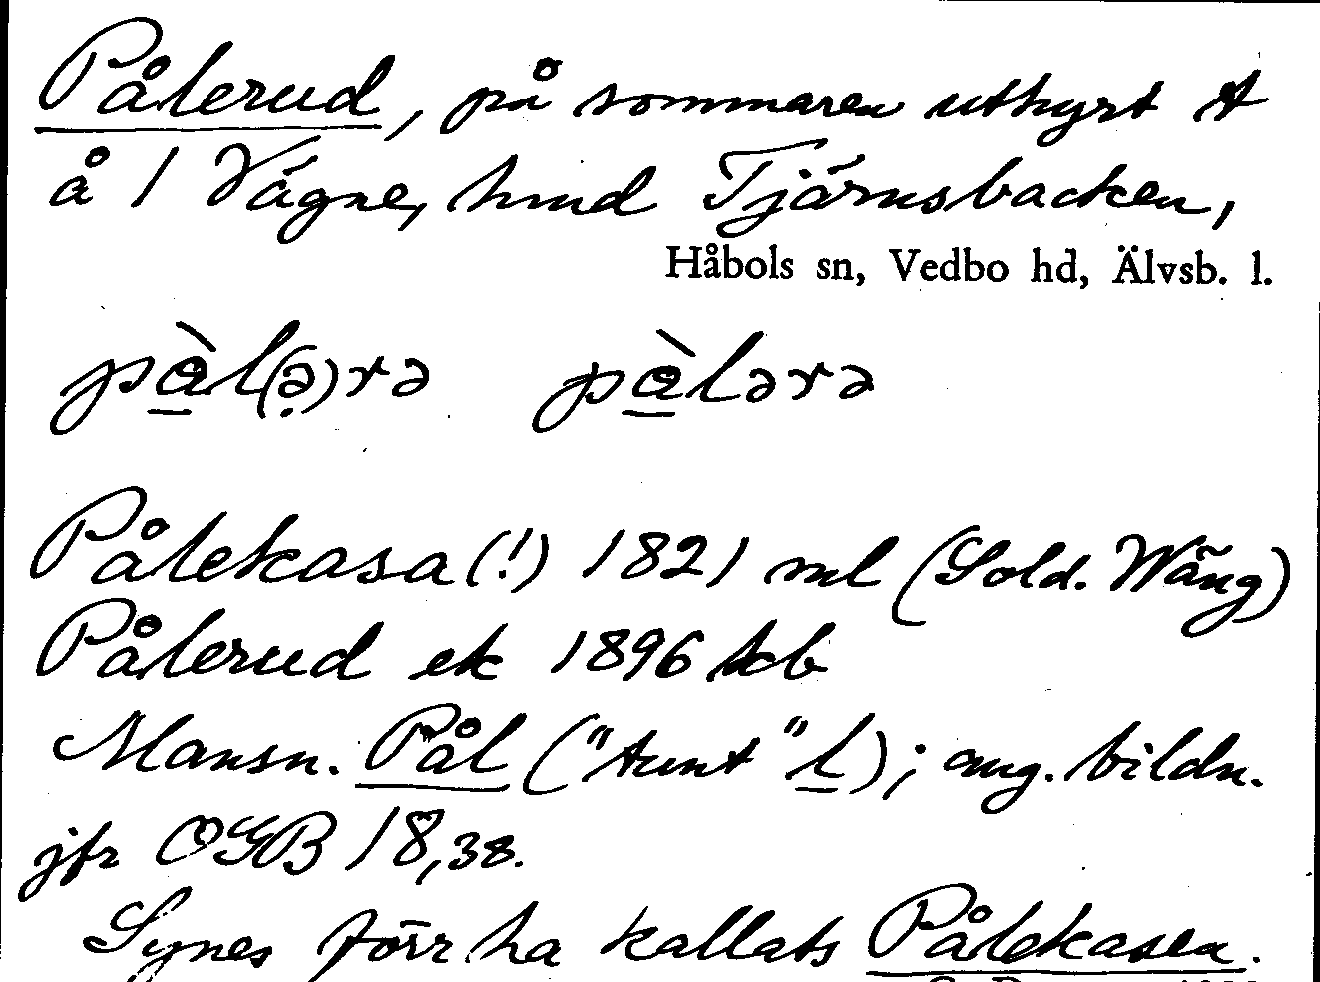 Pålerud, på sommaren uthyrt st
å 1 Vägne, hmd Tjärnsbacken,
Håbols sn, Vedbo hd, Älvsb. l.
pàl(ə)rə pàlərə
Pålekasa(!) 1821 ml (Sold. Wäng)
Pålerud ek 1896 kb
Mansn. Pål ("tunt" l); ang. bildn.
jfr OGB 18,38.
Synes förr ha kallats Pålekasen.